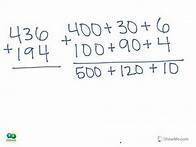 436 400+30+6
+194 +100+90+4
500+120+10
ShowMe.com